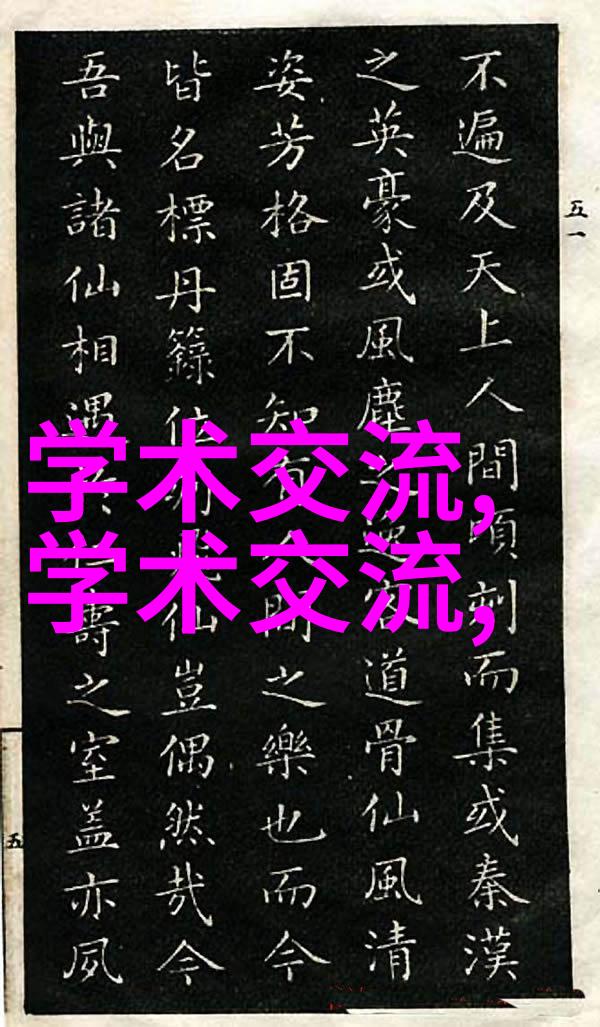 学术交流,
学术交流,
五一
不遍及天上人間頃刻而集或秦漢
之英豪或風塵客道骨仙風清
姿芳格固不知有間之樂也而今
皆名標丹籙仙豈偶然哉今
吾與諸仙相遇壽之室蓋亦夙
五